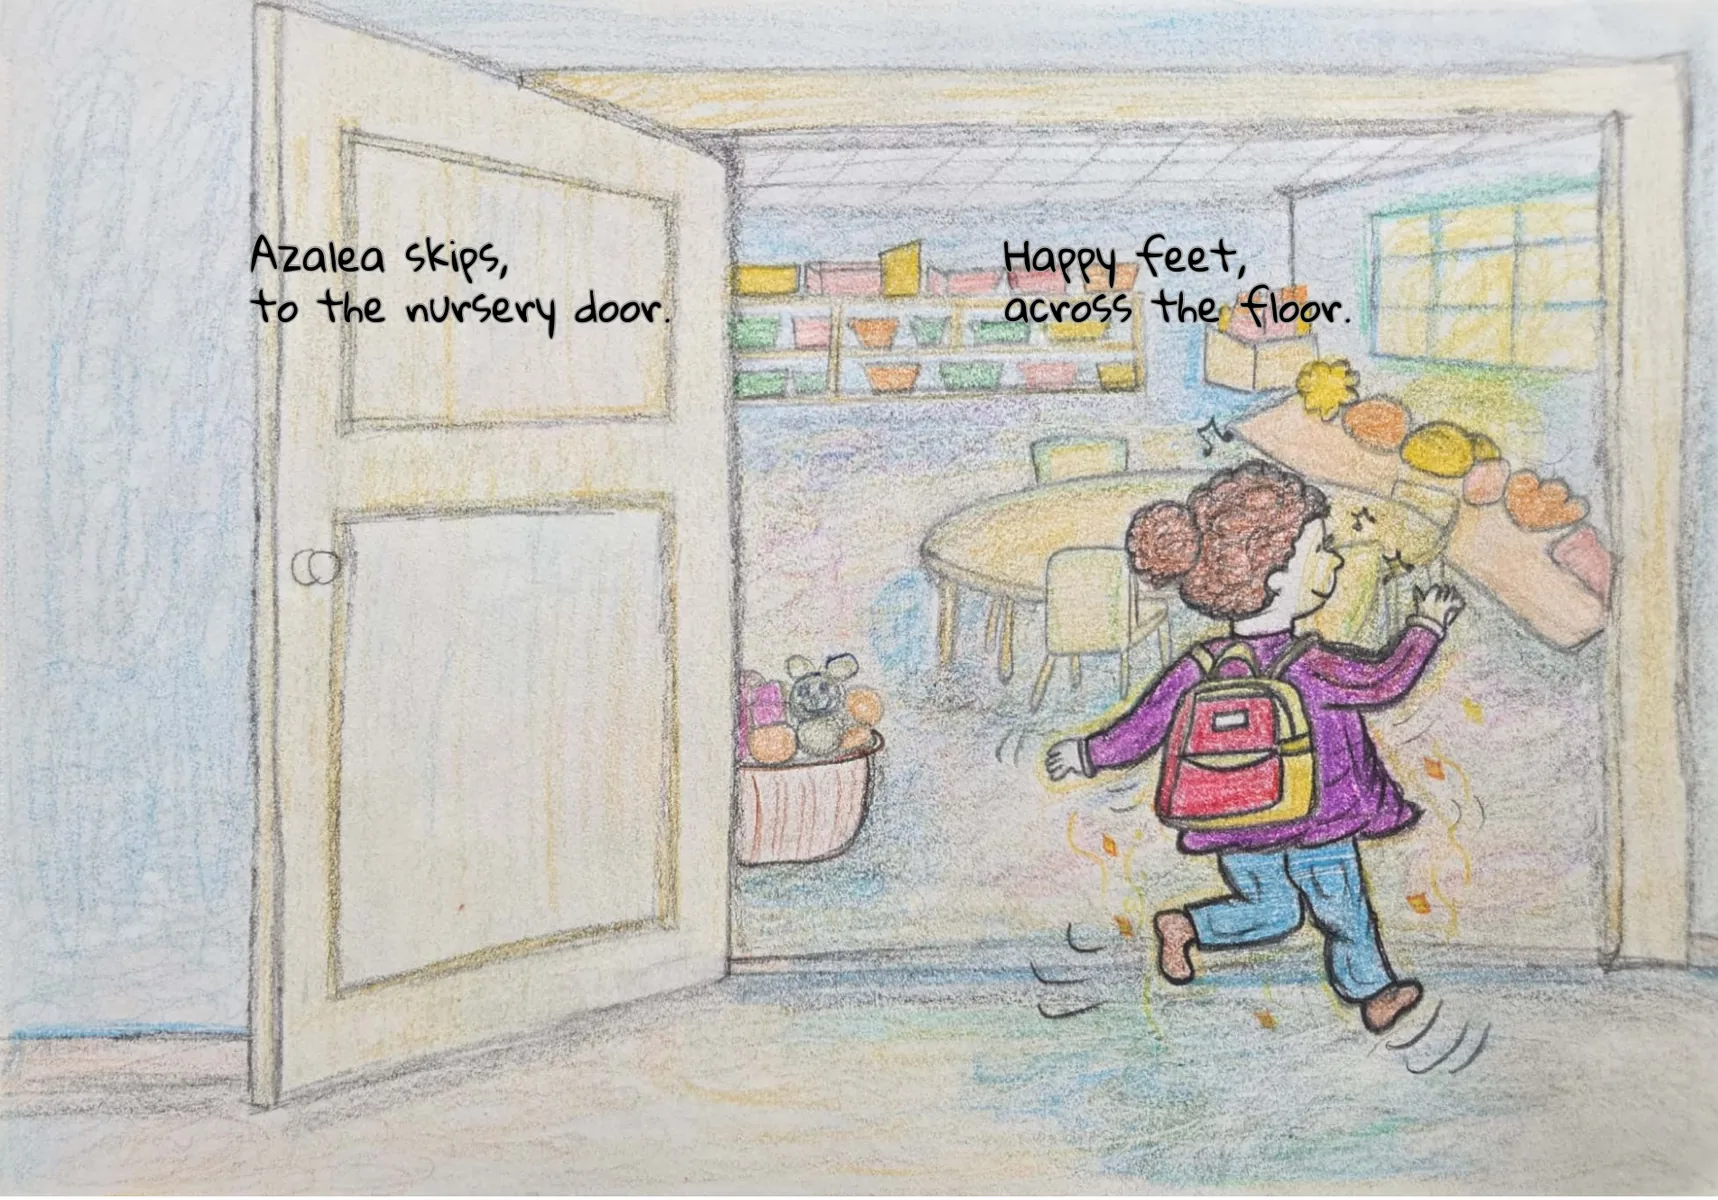 Azalea skips,
to the nursery door.
Happy feet,
across the floor.